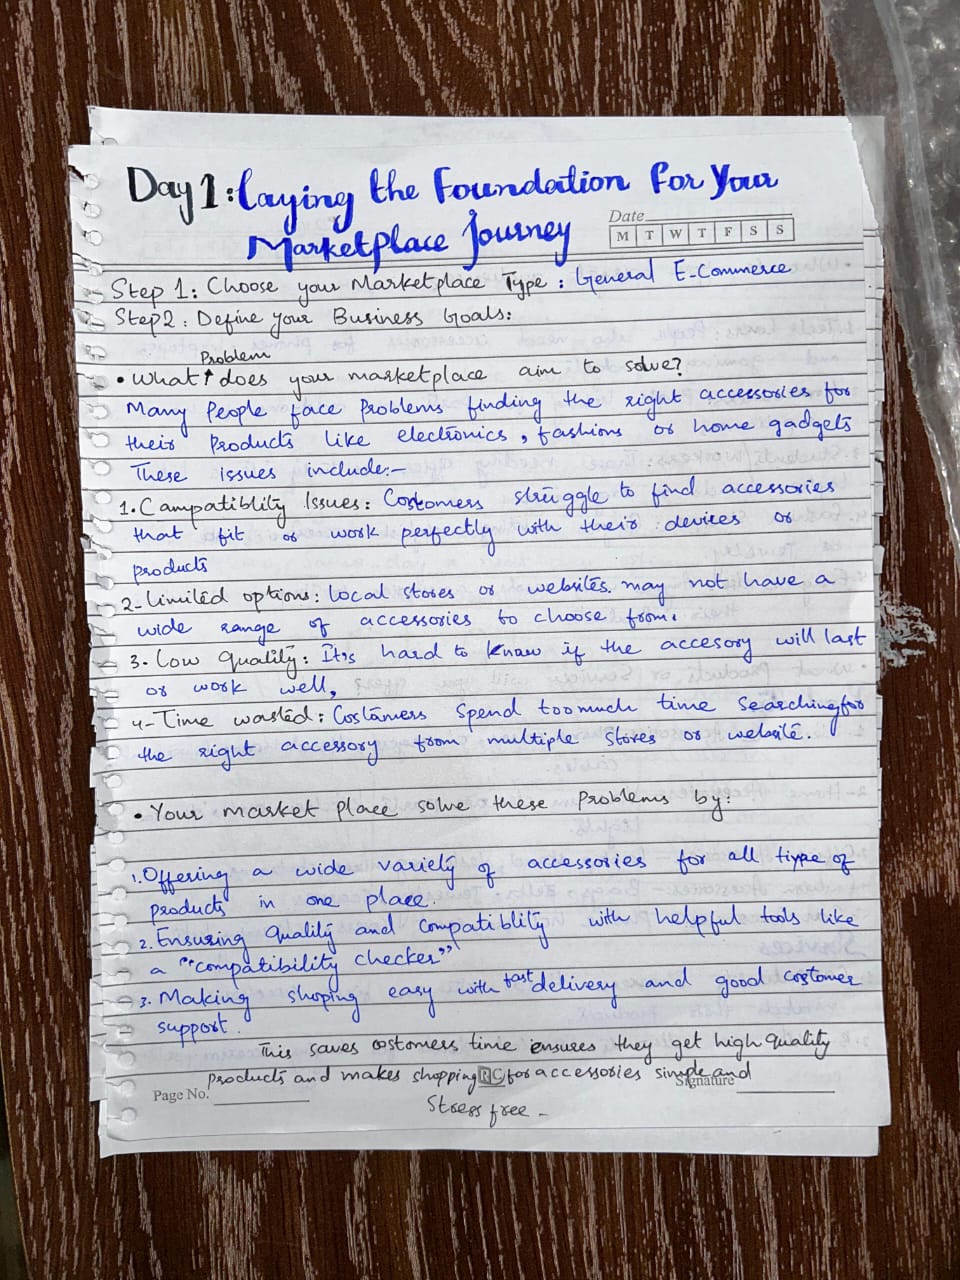 Day 1: Laying the Foundation For Your
Marketplace Journey
Date
M T W T F S S
Step 1: Choose your Marketplace Type : General E-Commerce
Step2: Define your Business Goals:
Problem
• What ↑ does your marketplace aim to solve?
Many People face Problems finding the right accessories for
their Products like electronics, fashions or home gadgets
These issues include:-
1. Campatiblity Issues: Costomers struggle to find accessories
that fit or work perfectly with their devices or
products
2- Limited options: local stores or websites. may not have a
wide range of accessories to choose from.
3. Low quality: It's hard to know if the accesory will last
or work well,
4- Time wasted: Costamers Spend too much time Searching for
the right accessory from multiple Stores or website.
• Your market place solve these Problems by:
1. Offering a wide variely of accessories for all tiype of
products in one place.
2. Ensuring quality and Compatiblity with helpful tools like
a "compatibility checker"
3. Making shoping easy with fast delivery and good costomer
support.
This saves costomers time ensures they get high quality
Products and makes shopping for accessories simple and
RC
Signature
Page No.
Stress free -